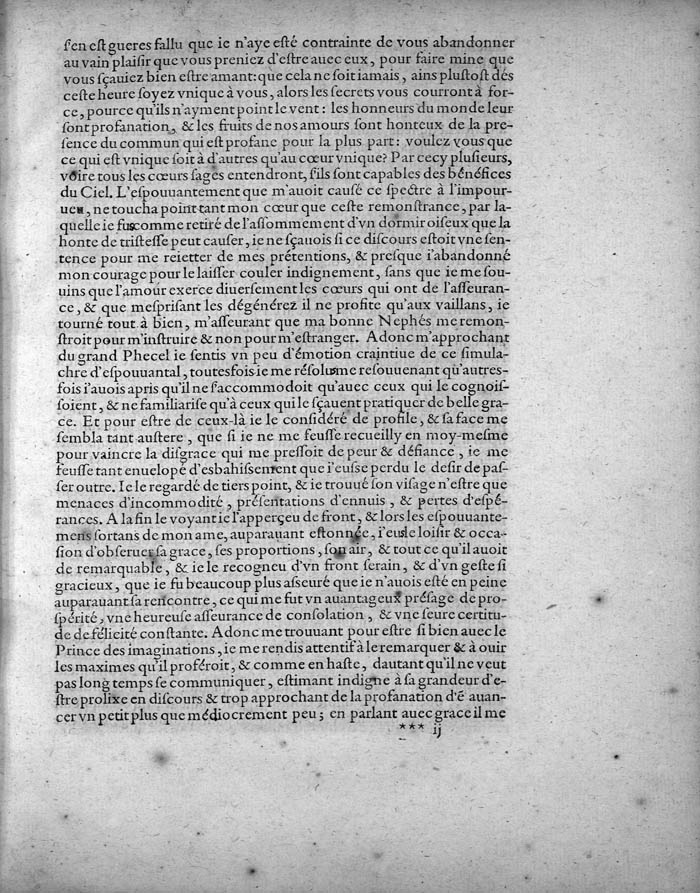 ſ'en eſt gueres fallu que ie n'aye eſté contrainte de vous abandonner
au vain plaiſir que vous preniez d'eſtre auec eux, pour faire mine que
vous ſçauiez bien eſtre amant: que cela ne ſoit iamais, ains pluſtoſt dés
ceſte heure ſoyez vnique à vous, alors les ſecrets vous courront à for-
ce, pource qu'ils n'ayment point le vent: les honneurs du monde leur
ſont profanation, & les fruits de nos amours ſont honteux de la pre-
ſence du commun qui eſt profane pour la plus part: voulez vous que
ce qui eſt vnique ſoit à d'autres qu'au cœur vnique? Par cecy pluſieurs,
voire tous les cœurs ſages entendront, ſ'ils ſont capables des bénéfices
du Ciel. L'eſpouuantement que m'auoit cauſé ce ſpectre à l'impour-
ueu, ne toucha point tant mon cœur que ceſte remonſtrance, par la-
quelle ie fus comme retiré de l'aſſommement d'vn dormir oiſeux que la
honte de triſteſſe peut cauſer, ie ne ſçauois ſi ce diſcours eſtoit vne ſen-
tence pour me reietter de mes prétentions, & preſque i'abandonné
mon courage pour le laiſſer couler indignement, ſans que ie me ſou-
uins que l'amour exerce diuerſement les cœurs qui ont de l'aſſeuran-
ce, & que meſpriſant les dégénérez il ne profite qu'aux vaillans, ie
tourné tout à bien, m'aſſeurant que ma bonne Nephés me remon-
ſtroit pour m'inſtruire & non pour m'eſtranger. Adonc m'approchant
du grand Phecel ie ſentis vn peu d'émotion craintiue de ce ſimula-
chre d'eſpouuantal, toutesfois ie me réſolu me reſouuenant qu'autres-
fois i'auois apris qu'il ne ſ'accommodoit qu'auec ceux qui le cognoiſ-
ſoient, & ne familiariſe qu'à ceux qui le ſçauent pratiquer de belle gra-
ce. Et pour eſtre de ceux-là ie le conſidéré de profile, & ſa face me
ſembla tant auſtere, que ſi ie ne me feuſſe recueilly en moy-meſme
pour vaincre la diſgrace qui me preſſoit de peur & défiance, ie me
feuſſe tant enuelopé d'esbahiſſement que i'euſſe perdu le deſir de paſ-
ſer outre. Ie le regardé de tiers point, & ie trouué ſon viſage n'eſtre que
menaces d'incommodité, préſentations d'ennuis, & pertes d'eſpé-
rances. A la fin le voyant ie l'apperçeu de front, & lors les eſpouuante-
mens ſortans de mon ame, auparauant eſtonnée, i'eu le loiſir & occa-
ſion d'obſeruer ſa grace, ſes proportions, ſon air, & tout ce qu'il auoit
de remarquable, & ie le recogneu d'vn front ſerain, & d'vn geſte ſi
gracieux, que ie fu beaucoup plus aſſeuré que ie n'auois eſté en peine
auparauant ſa rencontre, ce qui me fut vn auantageux préſage de pro-
ſpérité, vne heureuſe aſſeurance de conſolation, & vne ſeure certitu-
de de félicité conſtante. Adonc me trouuant pour eſtre ſi bien auec le
Prince des imaginations, ie me rendis attentif à le remarquer & à ouir
les maximes qu'il proféroit, & comme en haſte, dautant qu'il ne veut
pas long temps ſe communiquer, eſtimant indigne à ſa grandeur d'e-
ſtre prolixe en diſcours & trop approchant de la profanation d'ẽ auan-
cer vn petit plus que médiocrement peu; en parlant auec grace il me
*** ij